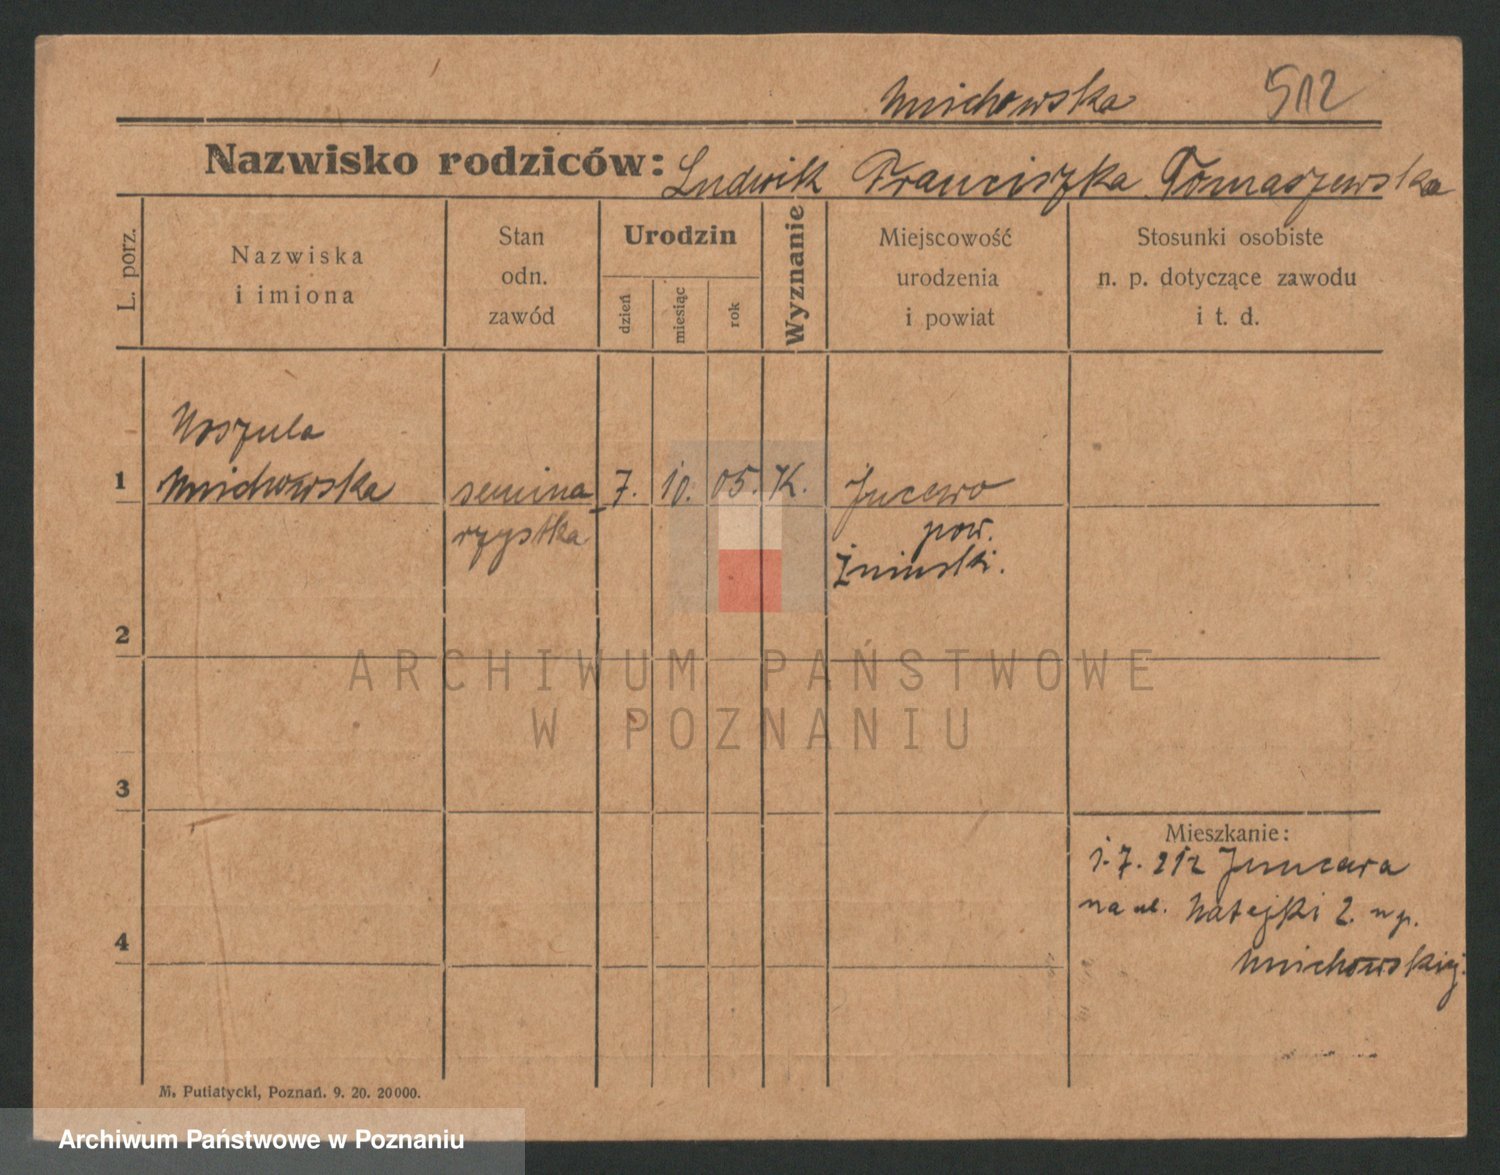 Mnichowska 512
Nazwisko rodziców: Ludwik Franciszka Tomaszewska
L. porz.
Nazwiska
i imiona
Stan
odn.
zawód
Urodzin
dzień
miesiąc
rok
Wyznanie
Miejscowość
urodzenia
i powiat
Stosunki osobiste
n. p. dotyczące zawodu
i t. d.
Urszula
1 Mnichowska semina 7. 10. 05. K. Jucewo
rzystka pow.
Żniński.
2
ARCHIWUM PAŃSTWOWE
W POZNANIU
3
Mieszkanie:
1.7.212
na ul. Matejki 2. u p.
Mnichowskiej.
4
M. Putiatycki, Poznań. 9. 20. 20000.
Archiwum Państwowe w Poznaniu